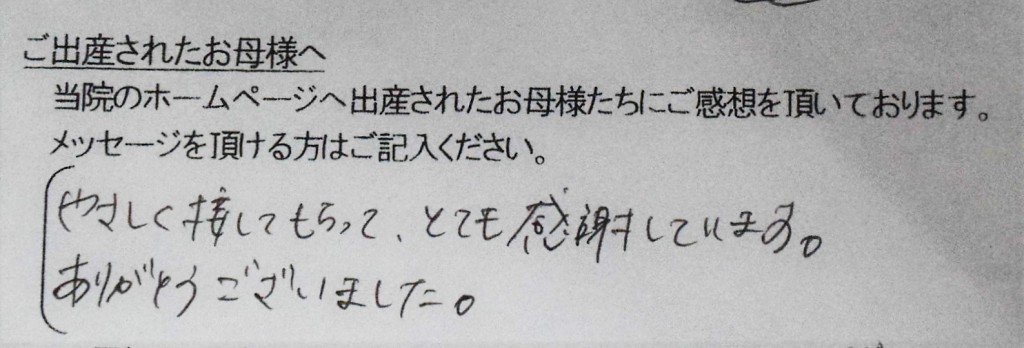 ご出産されたお母様へ
当院のホームページへ出産されたお母様たちにご感想を頂いております。
メッセージを頂ける方はご記入ください。
やさしく接してもらって、とても感謝しています。
ありがとうございました。